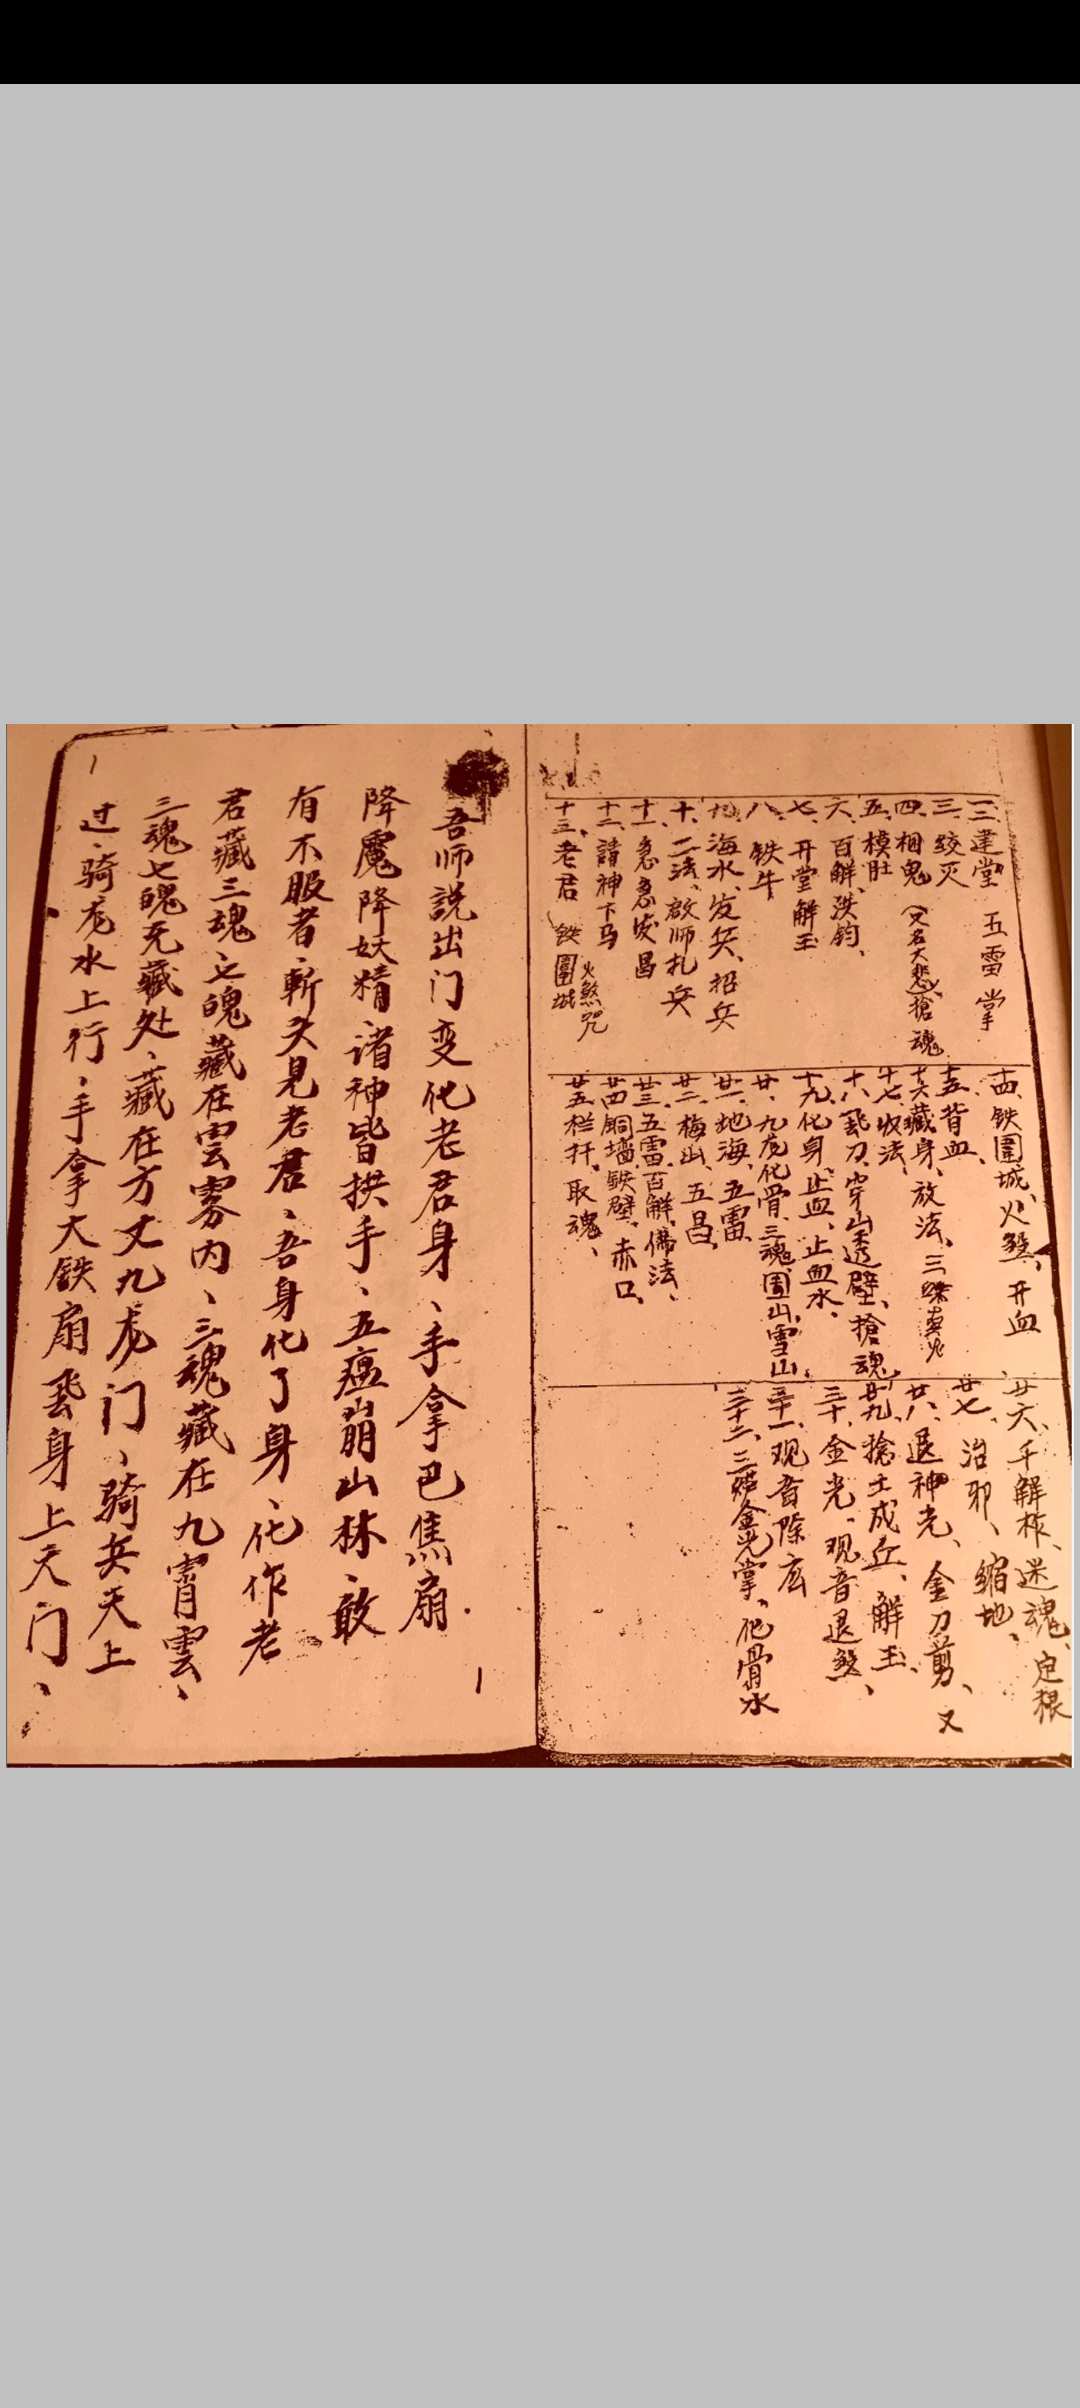 一二、建堂 五雷掌
三、绞灭
四、捆鬼(又名大悲)、搶魂
五、模肚
六、百解、洪鈞、
七、开堂解玉
八、铁牛
九、海水、发兵、招兵
十、二法、啟师扎兵
十一、急急发昌
十二、請神下马
十三、老君 铁圍城 火煞咒
十四、铁圍城、火煞、开血
十五、背血、
十六、藏身、放法、三昧真火
十七、收法、
十八、飛刀、穿山透壁、搶魂、
十九、化身、止血、止血水、
廿、九龙化骨、三魂、圍山、雪山、
廿一、地海、五雷、
廿二、梅山、五昌、
廿三、五雷、百解、佛法、
廿四、銅墻铁壁、赤口、
廿五、栏扦、取魂、
廿六、千解柞、迷魂、定根
廿七、治邪、缩地、
廿八、退神光、金刀剪、又
廿九、搶土成丘、解玉、
三十、金光、观音退煞、
三十一、观音除
三十二、三 金光掌、化骨水
吾师説出门变化老君身、手拿巴焦扇
降魔降妖精、诸神皆拱手、五瘟崩山林、敢
有不服者、斬头見老君、吾身化了身、化作老
君藏三魂、七魄藏在雲雾内、三魂藏在九霄雲、
三魂七魄无藏处、藏在方丈九龙门、骑兵天上
过、骑龙水上行、手拿大铁扇飛身上天门、